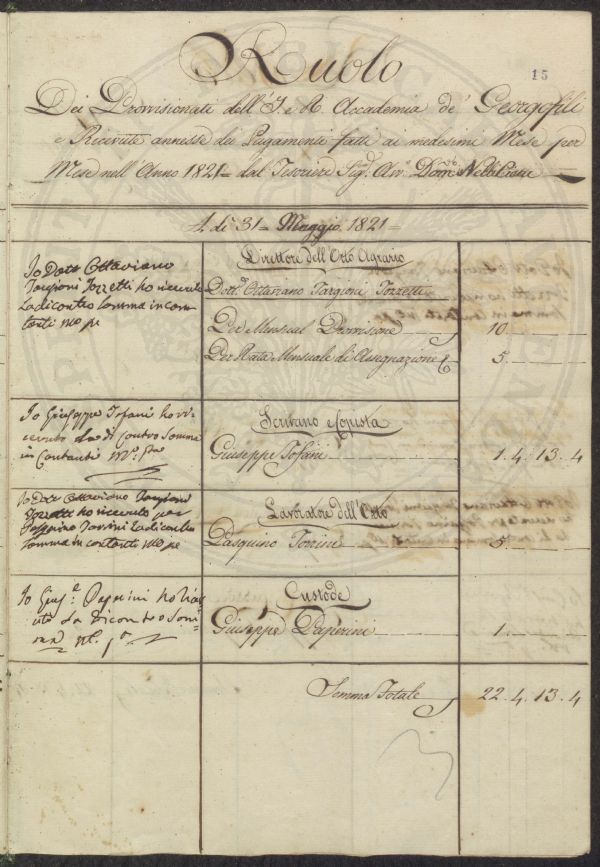 15
Ruolo
Dei Provvisionati dell'I. e R. Accademia de' Georgofili
e Ricevute annesse dei Pagamenti fatti ai medesimi Mese per
Mese nell'Anno 1821 dal Tesoriere Sig. Avv.
A dì 31 Maggio 1821
Direttore dell'Orto Agrario
Dott. Ottaviano Targioni Tozzetti
Per Mensual Provvisione 10
Per Rata Mensuale di Assegnazione 5
Io Dott Ottaviano
Targioni Tozzetti ho ricevuto
la di contro somma in con
tanti mo pe
Scrivano e Copista
Giuseppe Tofani 1. 4. 13. 4
Io Giuseppe Tofani ho ri
cevuto la di Contro Somma
in Contanti
Lavoratore dell'Orto
Pasquino Torrini 5
Io Dott Ottaviano Targioni
Tozzetti ho ricevuto per
Pasquino Torrini la di contro
somma in contanti mo pe
Custode
Giuseppe Paperini 1
Io Giuse Paperini ho rice
uto la di contro Som
ma
Somma Totale 22. 4. 13. 4